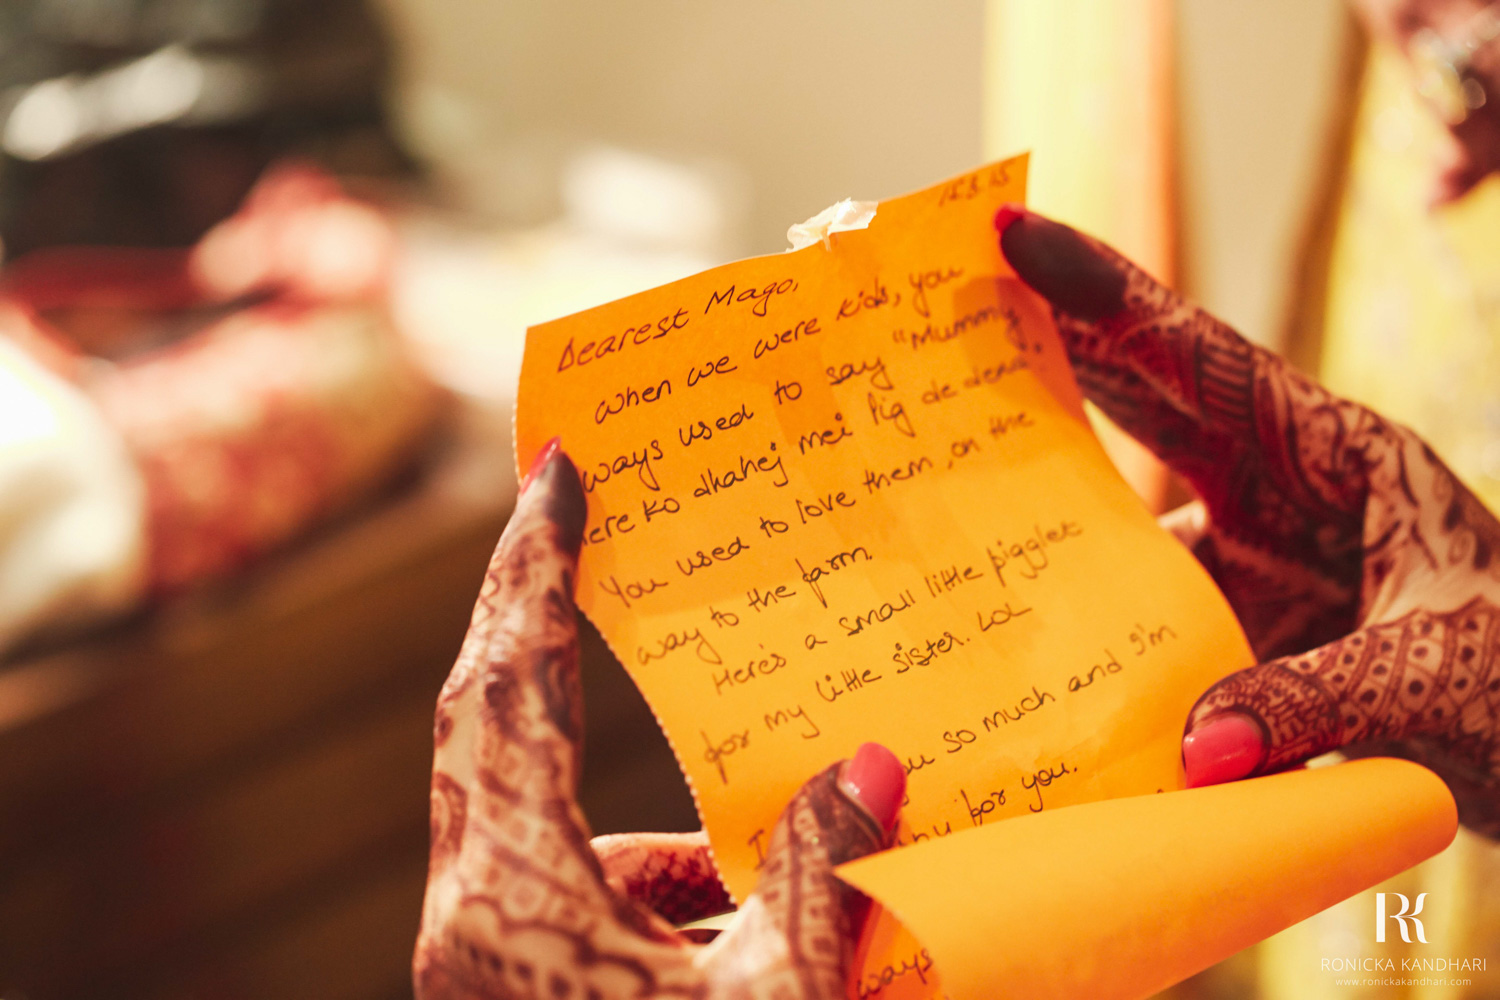 15.3.15
Dearest Mago,
When we were kids, you
ways used to say "Mummy
ere ko dhahej mei Pig de dena".
You used to love them, on the
way to the farm.
Here's a small little pigglet
for my little sister. LOL
I ou so much and I'm
for you.
ways
RK
RONICKA KANDHARI
www.ronickakandhari.com